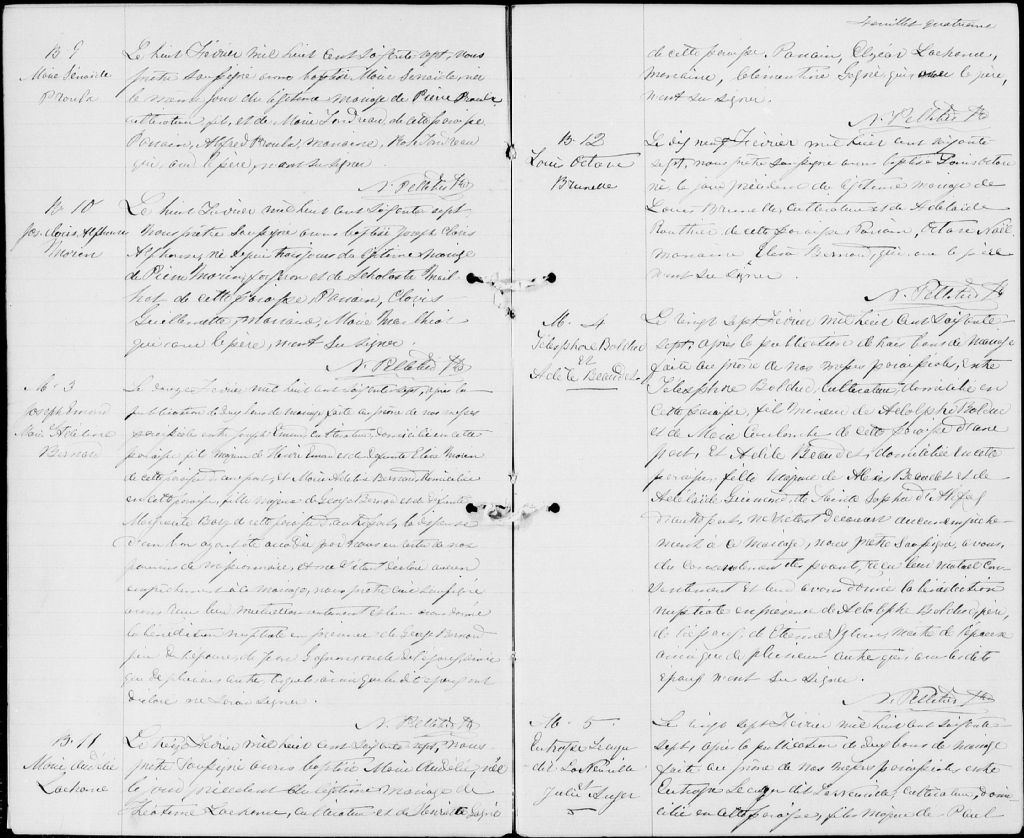 B 9
Marie Sénaide
Proulx
Le huit Février mil huit cent soixante sept, nous
prêtre soussigné avons baptisé Marie Sénaide, née
le même jour du légitime mariage de Pierre Proulx
cultivateur et de Marie de cette paroisse
Parrain, Alfred Proulx, marraine, Rose
qui ainsi le père, n'ont su signer.
N. Pelletier Ptre
B 10
Jos. Clovis Alphonse
Morin
Le huit Février mil huit cent soixante sept
Nous prêtre soussigné avons baptisé Joseph Clovis
Alphonse, né depuis trois jours du légitime mariage
de Pierre Morin, forgeron et de Scholastic Mail
hot de cette paroisse, Parrain, Clovis
Guillemette, marraine, Marie Mailhiot
qui ainsi le père, n'ont su signer.
N. Pelletier Ptre
M. 3
Joseph Emond
Marie Adeline
Bernard
Le onze Février mil huit cent soixante sept, après la
publication de deux bans de mariage faite au prône de nos messes
paroissiales entre Joseph Emond cultivateur, domicilié en cette
paroisse fils majeur de Henri Emond et de défunte Elise Morin
de cette paroisse d'une part, et Marie Bernard domiciliée
en cette paroisse, fille majeure de George Bernard et de défunte
Marguerite de cette paroisse d'autre part, la dispense
d'un ban ayant été accordée par nous en vertu de nos
pouvoirs de missionnaire, et ne s'étant déclaré aucun
empêchement à ce mariage, nous prêtre curé soussigné
avons reçu leur mutuel consentement et leur avons donné
la bénédiction nuptiale en présence de George Bernard
père de l'épouse, de Jean de l'époux, ainsi
que de plusieurs autres lesquels ainsi que les dits époux ont
déclaré ne savoir signer.
N. Pelletier Ptre
B. 11
Marie Aurélie
Lachance
Le seize Février mil huit cent soixante sept, nous
prêtre soussigné avons baptisé Marie Aurélie, née
le jour précédent du légitime mariage de
Théotime Lachance, cultivateur et de Henriette Gagné
Feuillet quatrième
de cette paroisse. Parrain, Elzéar Lachance,
marraine, Clémentine Gagné qui ainsi le père,
n'ont su signer.
N. Pelletier Ptre
B. 12
Louis Octave
Brunelle
Le dix neuf Février mil huit cent soixante
sept, nous prêtre soussigné avons baptisé Louis Octave
né le jour précédent du légitime mariage de
Louis Brunelle, cultivateur et de Adelaide
Gauthier de cette paroisse, Parrain, Octave Noël
marraine, Elisa Bernard, qui ainsi le père
n'ont su signer
N. Pelletier Ptre
M. 4
Télesphore Bolduc
et
Adèle Beaudet
Le vingt sept Février mil huit cent soixante
sept, après la publication de trois bans de mariage
faite au prône de nos messes paroissiales, entre
Télesphore Bolduc, cultivateur, domicilié en
cette paroisse, fils mineur de Adolphe Bolduc
et de Marie Coulombe de cette paroisse d'une
part, et Adèle Beaudet, domiciliée en cette
paroisse, fille majeure de Alexis Beaudet et de
Adelaide de Sainte Sophie d'Halifax
d'autre part, ne s'étant découvert aucun empêche-
ment à ce mariage, nous prêtre soussigné, avons,
du consentement des parents, reçu leur mutuel con-
sentement et leur avons donné la bénédiction
nuptiale en présence de Adolphe Bolduc, père,
de l'époux, de Etienne de l'épouse
ainsi que de plusieurs autres qui ainsi les dits
époux n'ont su signer.
N. Pelletier Ptre
M. 5
Eutrope
dit LaNeuville
Julie
Le vingt sept Février mil huit cent soixante
sept, après la publication de deux bans de mariage
faite au prône de nos messes paroissiales, entre
Eutrope dit Laneuville, cultivateur, domi-
cilié en cette paroisse, fils majeur de Paul